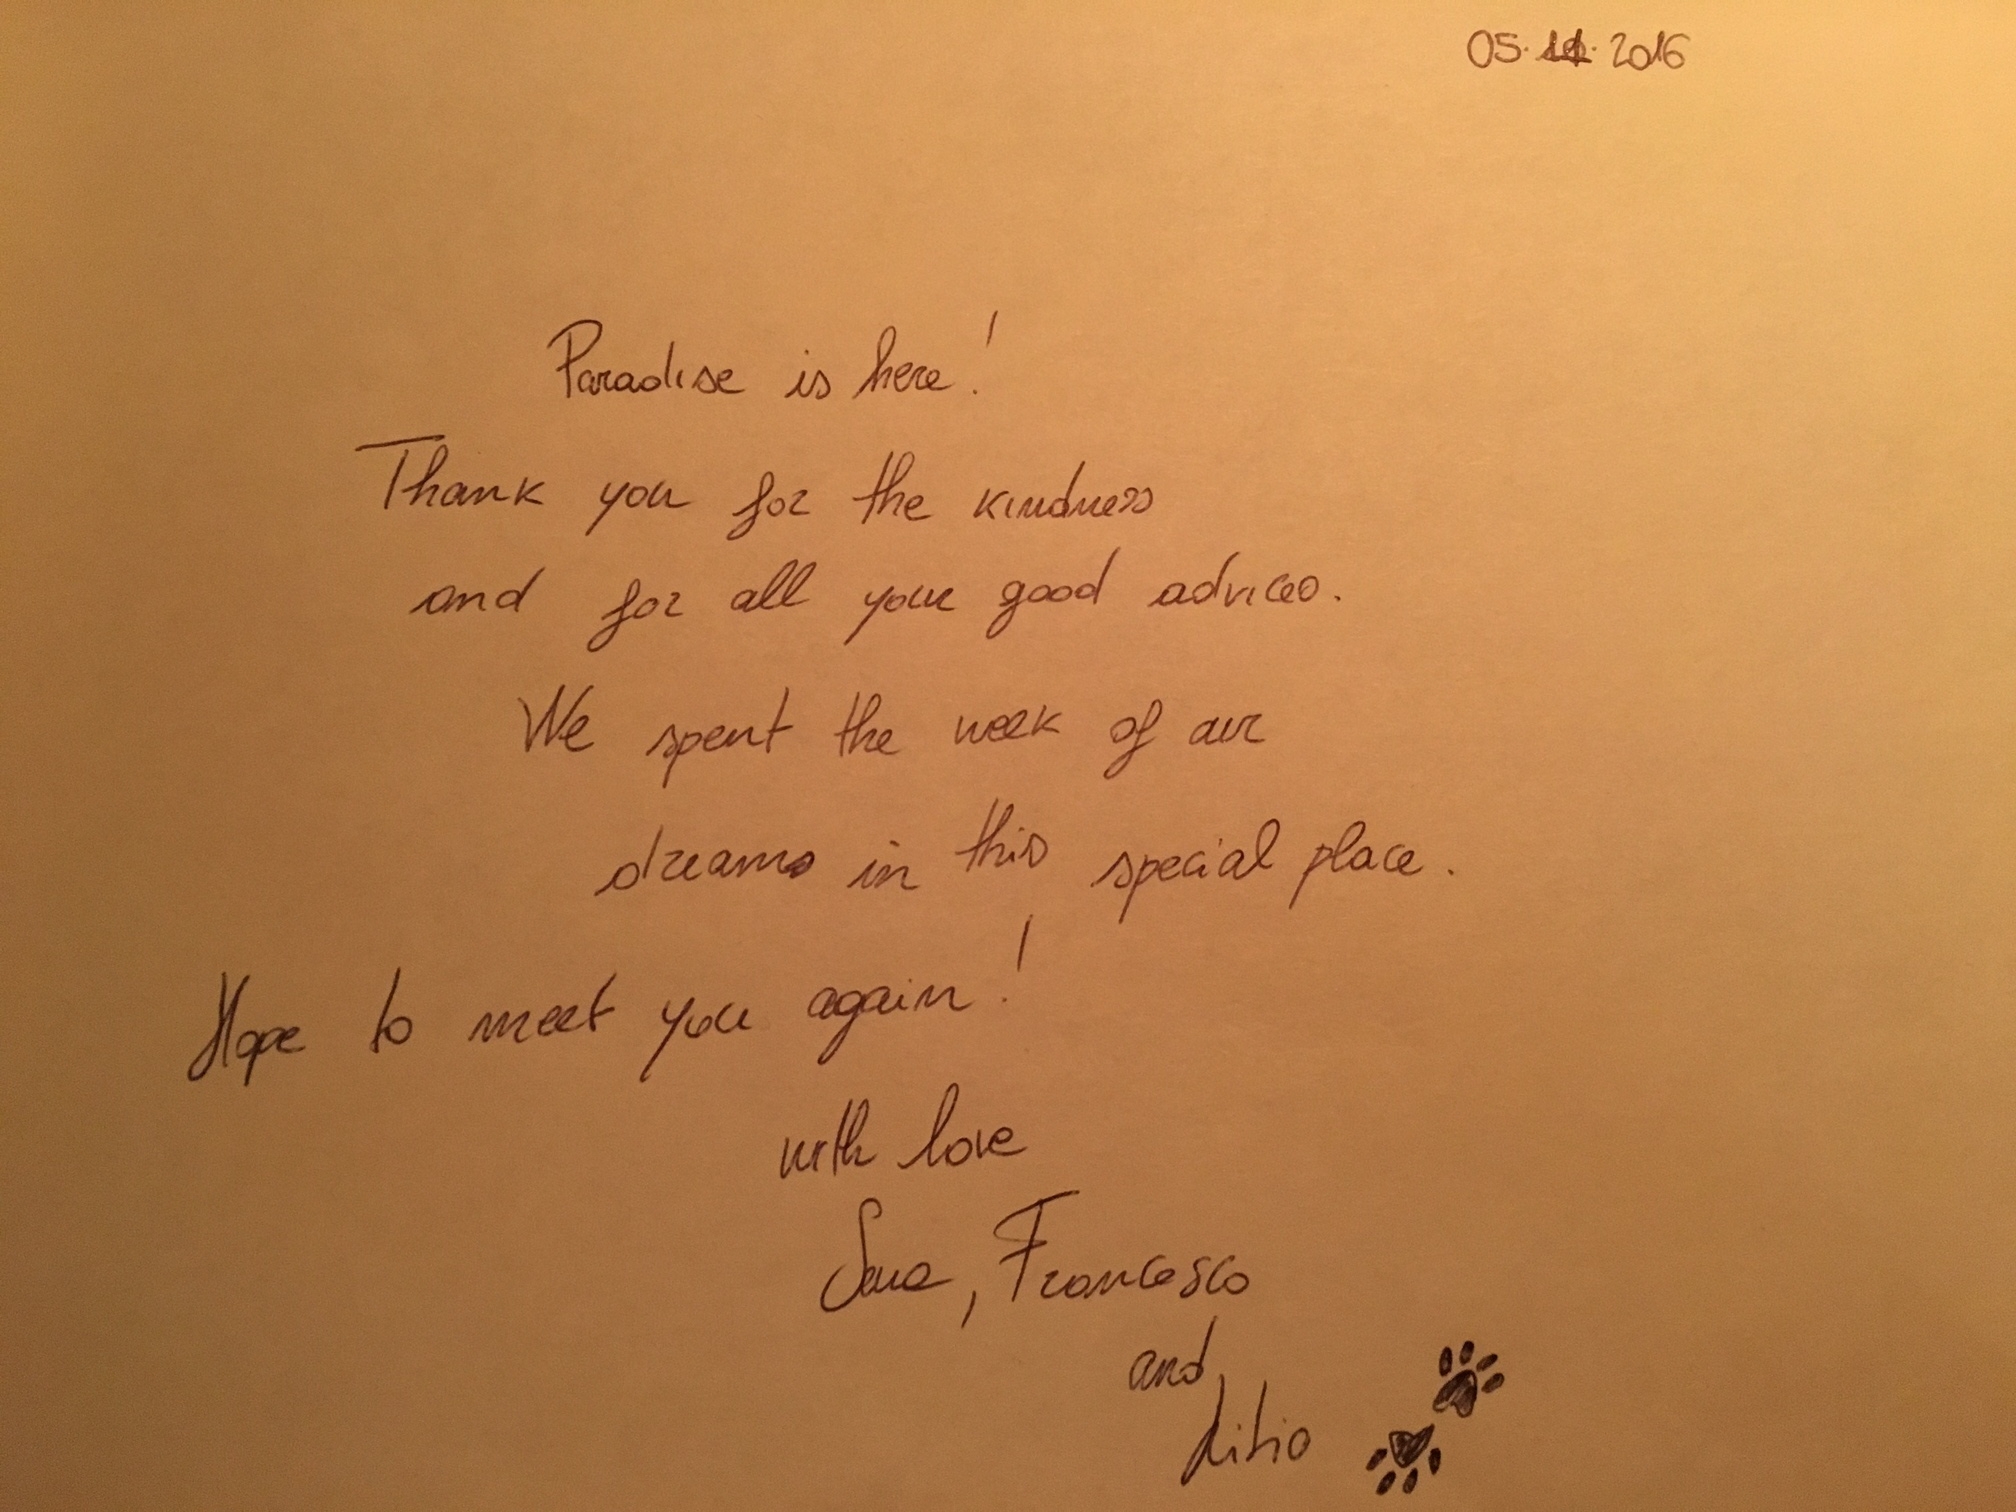 05.11.2016
Paradise is here!
Thank you for the kindness
and for all your good advices.
We spent the week of our
dreams in this special place.
Hope to meet you again!
with love
Sara, Francesco
and
Litio